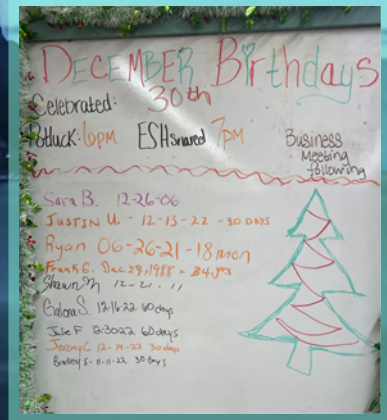 DECEMBER Birthdays
Celebrated: 30th
Potluck: 6pm ESH shared 7pm
Business
Meeting
following
Sara B. 12-26-06
JUSTIN U. - 12-13-22 - 30 DAYS
Ryan 06-26-21 - 18 mon
Frank G. Dec 29, 1988 - 34 yrs
Shawn M 12-21-11
S. 12-16-22 60 days
Julie F 12-30-22 60 days
Jeremy C. 12-14-22 30 days
Bradley S - 11-11-22 30 Days